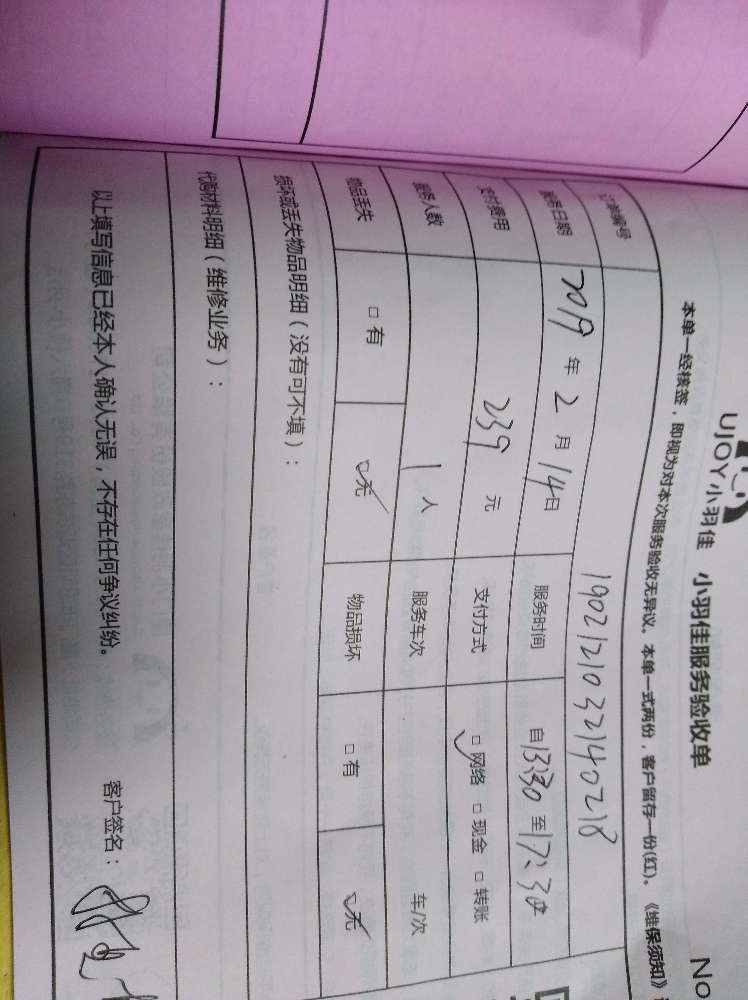 UJOY小羽佳 小羽佳服务验收单
No
本单一经核签，即视为对本次服务验收无异议。本单一式两份，客户留存一份(红)。《维保须知》
订单编号 19021210322140218
服务日期 2019年2月14日 服务时间 自13:30至17:30
支付费用 239元 支付方式 □网络 □现金 □转账
服务人数 1人 服务车次 车/次
物品丢失 □有 □无 物品损坏 □有 □无
损坏或丢失物品明细（没有可不填）：
代购材料明细（维修业务）：
以上填写信息已经本人确认无误，不存在任何争议纠纷。 客户签名：